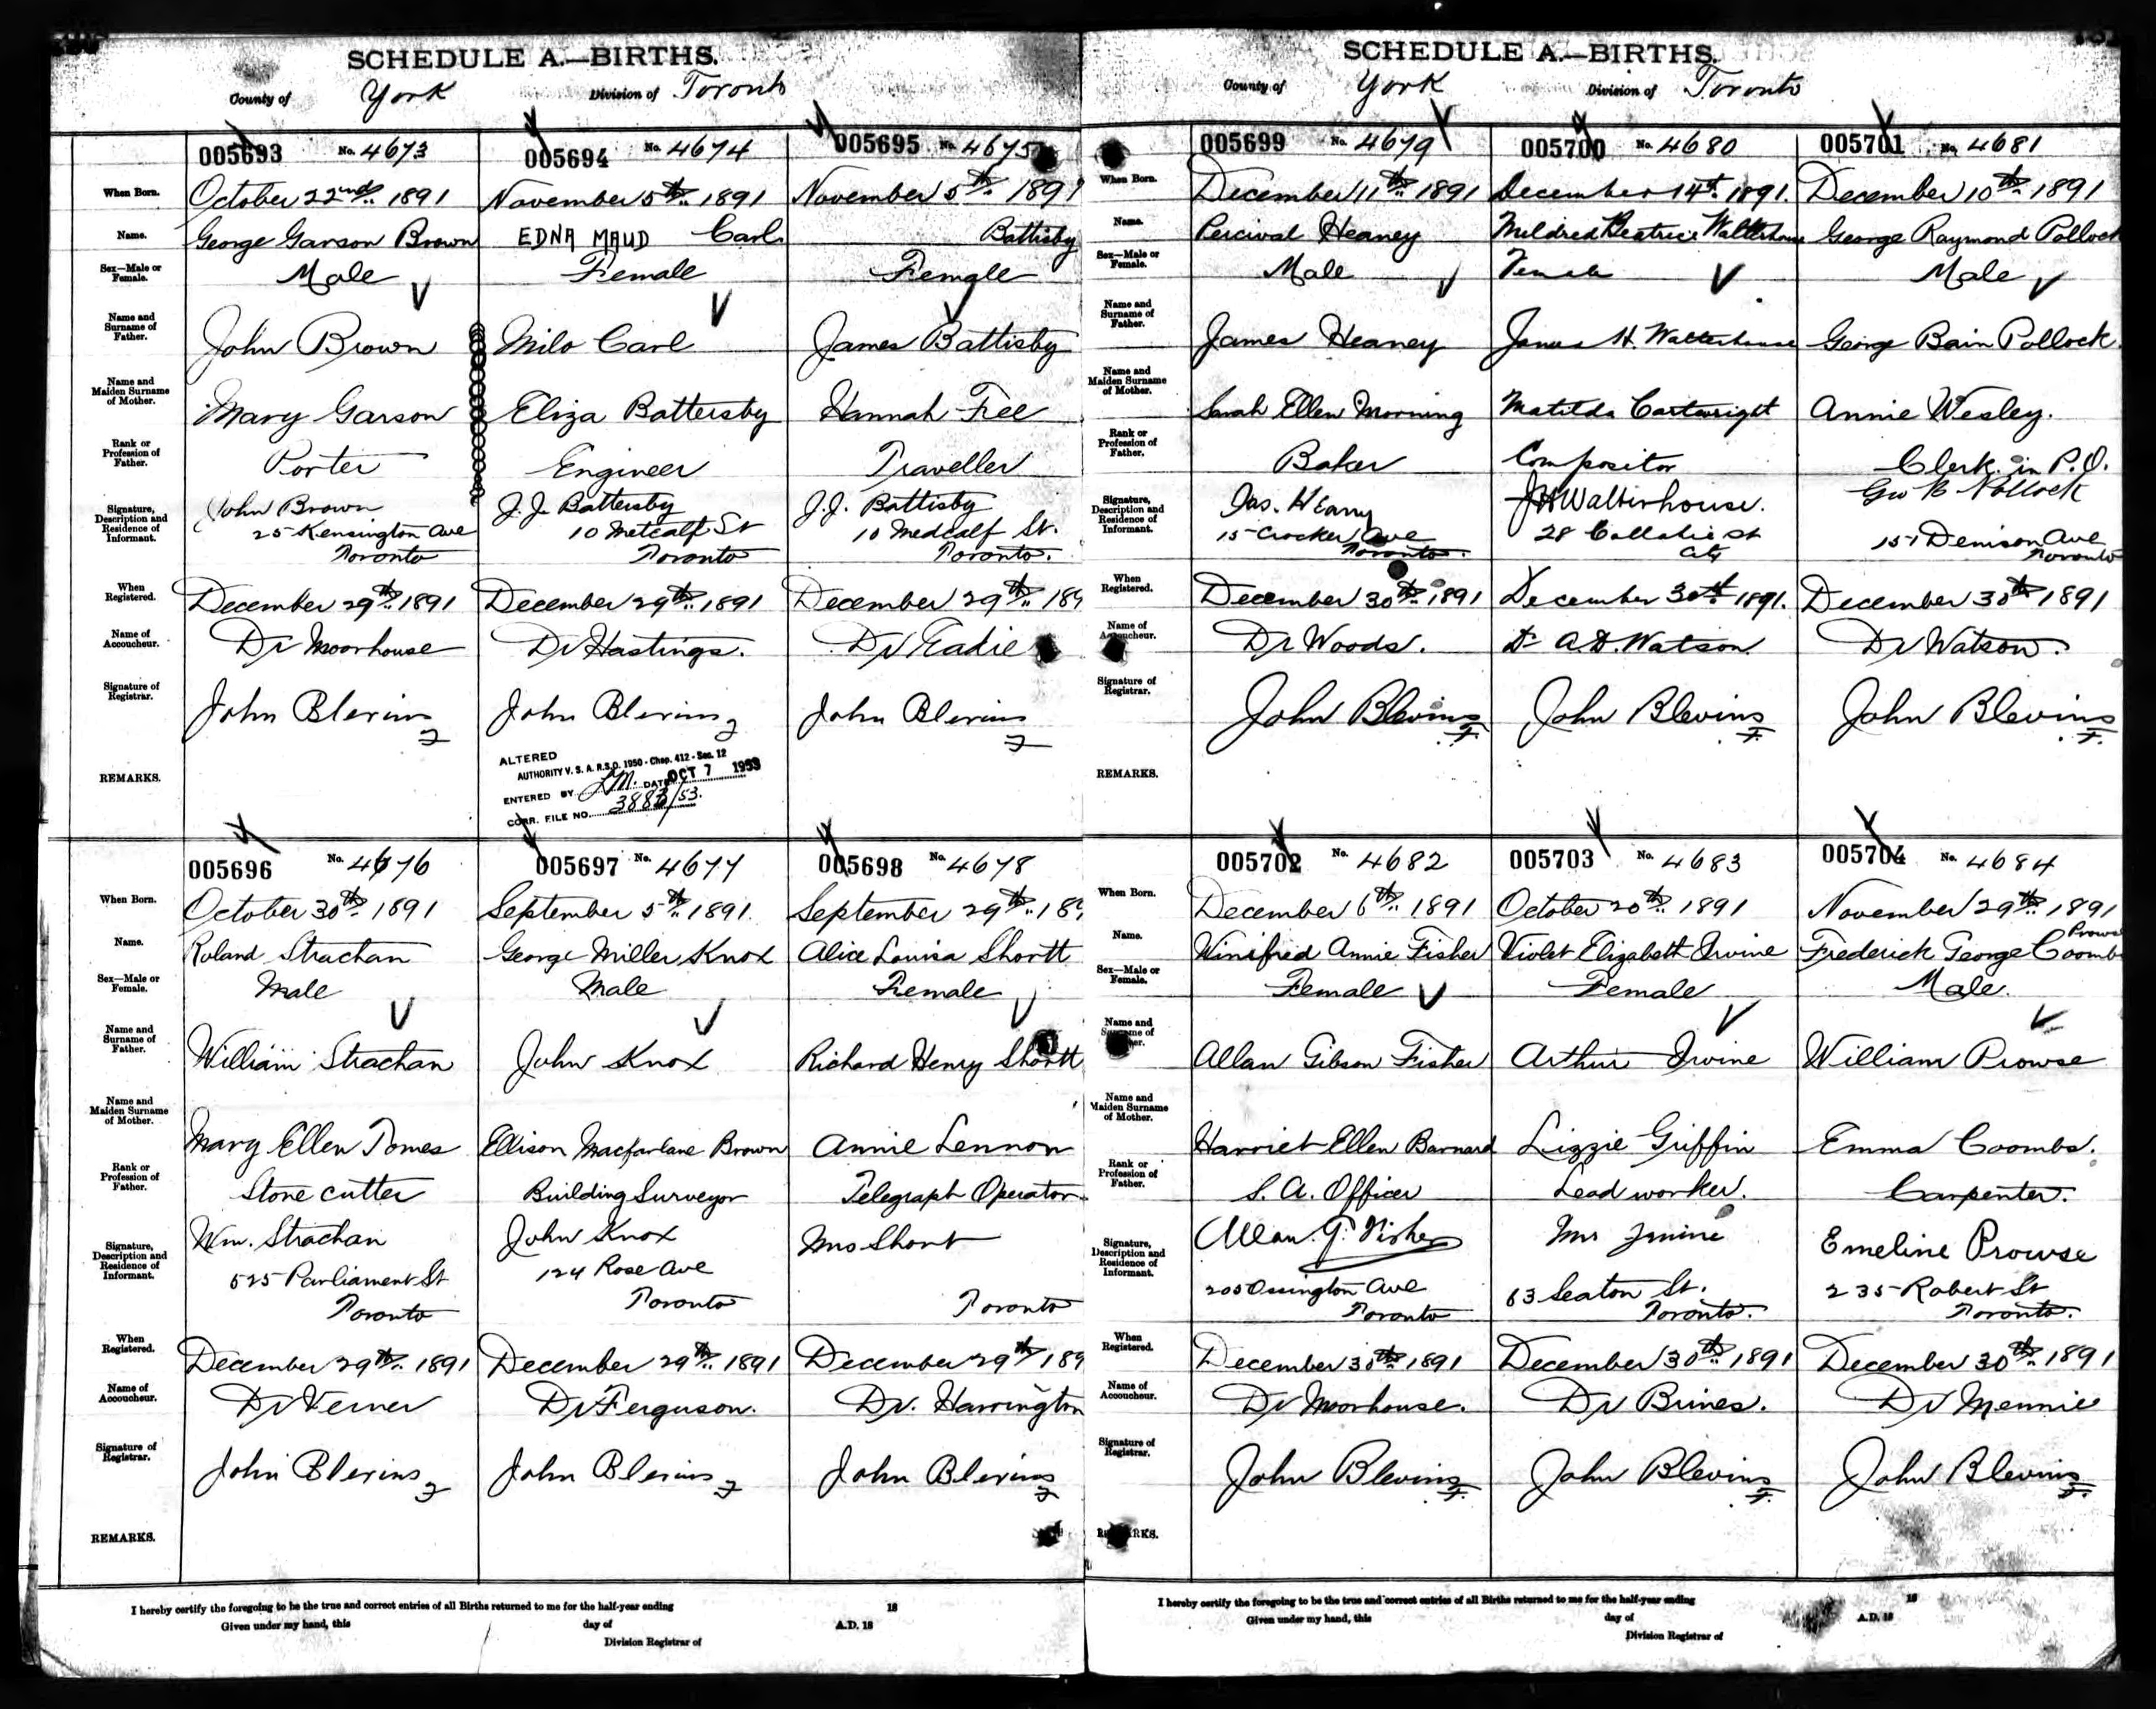 SCHEDULE A.—BIRTHS.
County of York Division of Toronto
005693 No. 4673 005694 No. 4674 005695 No. 4675
When Born. October 22nd. 1891 November 5th. 1891 November 5th. 1891
Name. George Garson Brown EDNA MAUD Carl Battisby
Sex—Male or Female. Male Female Female
Name and Surname of Father. John Brown Milo Carl James Battisby
Name and Maiden Surname of Mother. Mary Garson Eliza Battersby Hannah Fee
Rank or Profession of Father. Porter Engineer Traveller
Signature, Description and Residence of Informant. John Brown J.J. Battersby J.J. Battisby
25 Kensington Ave 10 Metcalf St 10 Medcalf St.
Toronto Toronto Toronto.
When Registered. December 29th. 1891 December 29th. 1891 December 29th. 189
Name of Accoucheur. Dr Moorhouse Dr Hastings. Dr Eadie
Signature of Registrar. John Blevins John Blevins John Blevins
REMARKS.
ALTERED
AUTHORITY V. S. A. R.S.O. 1950 - Chap. 412 - Sec. 12
ENTERED BY DATE OCT 7 1953
CORR. FILE NO.
005696 No. 4676 005697 No. 4677 005698 No. 4678
When Born. October 30th. 1891 September 5th. 1891. September 29th. 189
Name. Roland Strachan George Miller Knox Alice Louisa Shortt
Sex—Male or Female. Male Male Female
Name and Surname of Father. William Strachan John Knox Richard Henry Shortt
Name and Maiden Surname of Mother. Mary Ellen Tomes Ellison Macfarlane Brown Annie Lennon
Rank or Profession of Father. Stone cutter Building Surveyor Telegraph Operator
Signature, Description and Residence of Informant. Wm. Strachan John Knox Mrs Short
525 Parliament St 124 Rose Ave
Toronto Toronto Toronto
When Registered. December 29th. 1891 December 29th. 1891 December 29th 189
Name of Accoucheur. Dr Verner Dr Ferguson. Dr. Harrington
Signature of Registrar. John Blevins John Blevins John Blevins
REMARKS.
I hereby certify the foregoing to be the true and correct entries of all Births returned to me for the half-year ending 18
Given under my hand, this day of A.D. 18
Division Registrar of
SCHEDULE A.—BIRTHS.
County of York Division of Toronto
005699 No. 4679 005700 No. 4680 005701 No. 4681
When Born. December 11th. 1891 December 14th. 1891. December 10th. 1891
Name. Percival Heaney Mildred Beatrice Walterhouse George Raymond Pollock
Sex—Male or Female. Male Female Male
Name and Surname of Father. James Heaney James H. Walterhouse George Bain Pollock
Name and Maiden Surname of Mother. Sarah Ellen Morning Matilda Cartwright Annie Wesley.
Rank or Profession of Father. Baker Compositor Clerk in P.O.
Signature, Description and Residence of Informant. Jas. Heany JH Walterhouse. Geo B Pollock
15 Crocker Ave 28 St 151 Denison Ave
Toronto. City Toronto
When Registered. December 30th. 1891 December 30th. 1891. December 30th 1891
Name of Accoucheur. Dr Woods. Dr A.D. Watson Dr Watson.
Signature of Registrar. John Blevins F. John Blevins F. John Blevins F.
REMARKS.
005702 No. 4682 005703 No. 4683 005704 No. 4684
When Born. December 6th. 1891 October 20th. 1891 November 29th. 1891
Prowse
Name. Winifred Annie Fisher Violet Elizabeth Irvine Frederick George Coombs
Sex—Male or Female. Female Female Male.
Name and Surname of Father. Allan Gibson Fisher Arthur Irvine William Prowse
Name and Maiden Surname of Mother. Harriet Ellen Barnard Lizzie Griffin Emma Coombs.
Rank or Profession of Father. S. A. Officer Lead worker. Carpenter.
Signature, Description and Residence of Informant. Allan. G. Fisher Mrs Irvine Emeline Prowse
205 Ossington Ave 63 Seaton St. 235 Robert St
Toronto Toronto. Toronto.
When Registered. December 30th. 1891 December 30th. 1891 December 30th. 1891
Name of Accoucheur. Dr Moorhouse. Dr Brines. Dr Mennie
Signature of Registrar. John Blevins F. John Blevins F. John Blevins F.
REMARKS.
I hereby certify the foregoing to be the true and correct entries of all Births returned to me for the half-year ending 18
Given under my hand, this day of A.D. 18
Division Registrar of